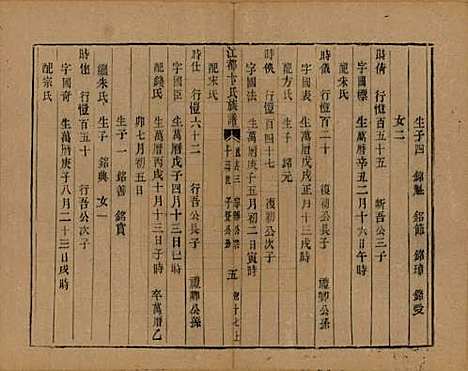 生子四 銘魁 銘節 銘璋 銘受
女二
時倩 行愷百五十五 新吾公三子
字國標 生萬曆辛丑二月十六日午時
配朱氏
時儀 行愷百二十 復初公長子
字國表 生萬曆戊戌正月十三戌時
配方氏 生子 銘元
時俄 行愷百四十七 復初公次子
字國法 生萬曆庚子五月初二日寅時
配宋氏
江都卞氏族譜
五
時仕 行愷六十二 行吾公長子 禮卿公孫
字國臣 生萬曆戊子四月十三日巳時
配錢氏 生萬曆丙戌十月十三日子時 卒萬曆乙
卯七月初五日
生子一 銘善 銘賞
繼朱氏 生子 銘典 女一
時進 行愷百五十 行吾公次子 禮卿公孫
字國奇 生萬曆庚子八月二十三日戌時
配宗氏